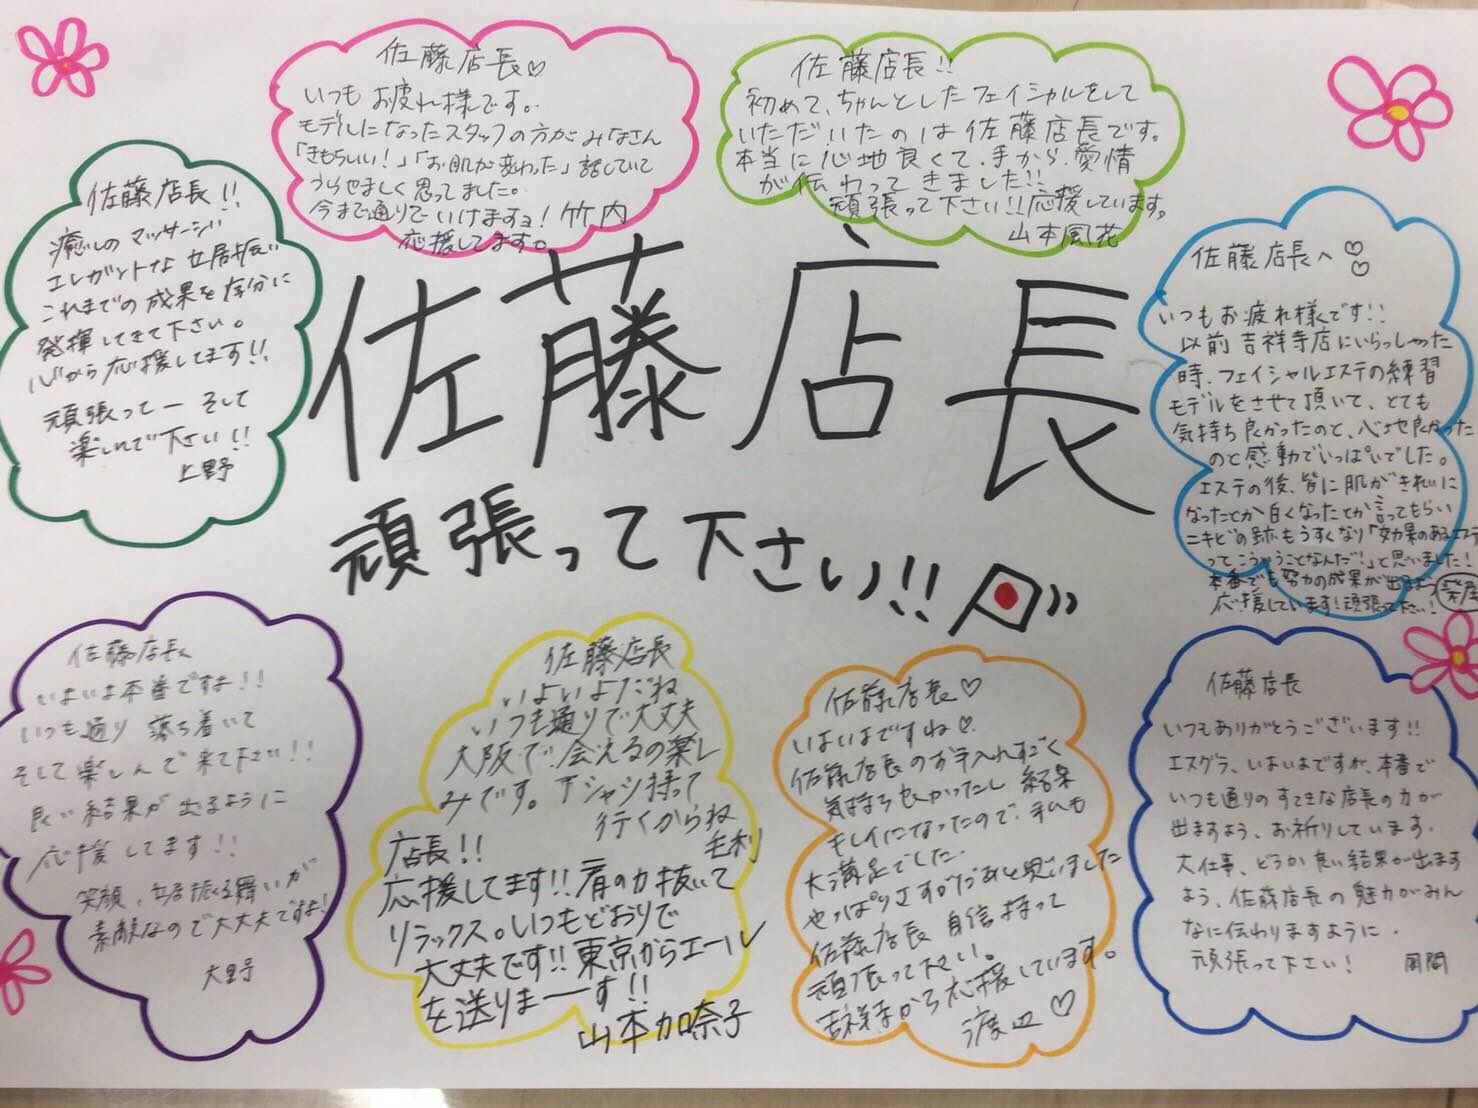 佐藤店長♡
いつもお疲れ様です。
モデルになったスタッフの方がみなさん
「きもちいい!」「お肌が変わった」話していて
うらやましく思ってました。
今まで通りでいけますヨ! 竹内
応援してます。
佐藤店長!!
初めて、ちゃんとしたフェイシャルをして
いただいたのは佐藤店長です。
本当に心地良くて、手から愛情
が伝わってきました!!
頑張って下さい!!応援しています。
山本風花
佐藤店長!!
癒しのマッサージ
エレガントな立居振い
これまでの成果を存分に
発揮してきて下さい。
心から応援してます!!
頑張ってーそして
楽しんで下さい!!
上野
佐藤店長へ♡♡
いつもお疲れ様です!!
以前吉祥寺店にいらっしゃった
時、フェイシャルエステの練習
モデルをさせて頂いて、とても
気持ち良かったのと、心地良かった
のと感動でいっぱいでした。
エステの後、皆に肌がきれいに
なったとか白くなったとか言ってもらい
ニキビの跡もうすくなり「効果のあるエステ
ってこういうことなんだ!」と思いました!
本番でも努力の成果が出るよう
応援しています!頑張って下さい!
佐藤店長
頑張って下さい!!
佐藤店長へ
いよいよ本番ですね!!
いつも通り落ち着いて
そして楽しんで来て下さい!!
良い結果が出るように
応援してます!!
笑顔、立居振る舞いが
素敵なので大丈夫ですよ!
大野
佐藤店長
いよいよだね
いつも通りで大丈夫
大阪で会えるの楽し
みです。Tシャツ持って
行くからね
毛利
店長!!
応援してます!!肩の力抜いて
リラックス。いつもどおりで
大丈夫です!!東京からエール
を送りまーーす!!
山本加奈子
佐藤店長♡
いよいよですね♡
佐藤店長のお手入れすごく
気持ち良かったし、結果
キレイになったので、私も
大満足でした。
やっぱりさすがだなと思いました
佐藤店長 自信持って
頑張って下さい。
吉祥寺から応援しています。
渡辺♡
佐藤店長
いつもありがとうございます!!
エスグラ、いよいよですが、本番で
いつも通りのすてきな店長の力が
出ますよう、お祈りしています。
大仕事、どうか良い結果が出ます
よう、佐藤店長の魅力がみん
なに伝わりますように。
頑張って下さい!